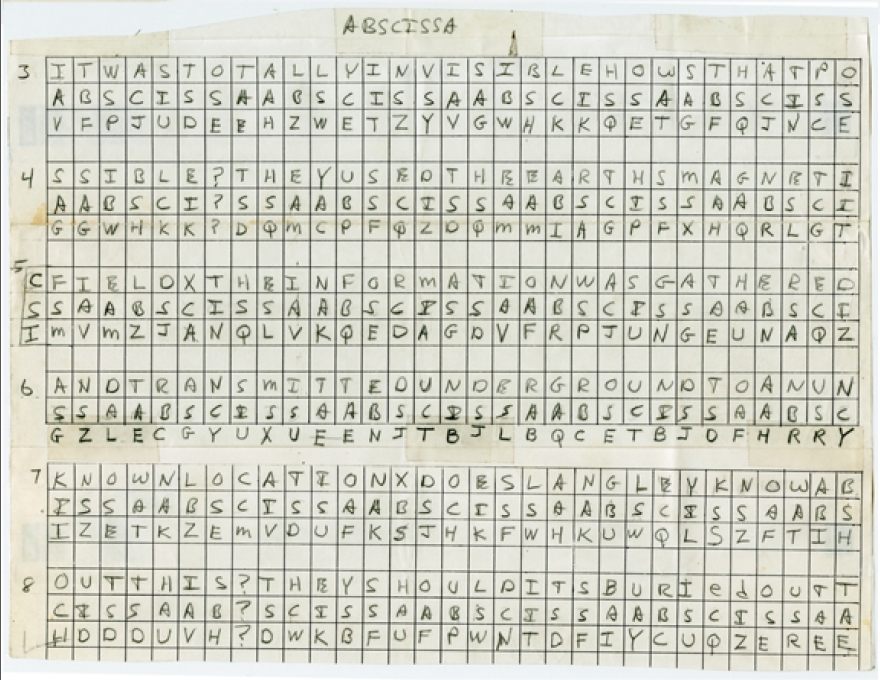 ABSCISSA
3 I T W A S T O T A L L Y I N V I S I B L E H O W S T H A T P O
A B S C I S S A A B S C I S S A A B S C I S S A A B S C I S S
V F P J U D E E H Z W E T Z Y V G W H K K Q E T G F Q J N C E
4 S S I B L E ? T H E Y U S E D T H E E A R T H S m A G N E T I
A A B S C I ? S S A A B S C I S S A A B S C I S S A A B S C I
G G W H K K ? D Q m C P F Q Z D Q m m I A G P F X H Q R L G T
5 C F I E L D X T H E I N F O R m A T I O N W A S G A T H E R E D
S S A A B S C I S S A A B S C I S S A A B S C I S S A A B S C I
I m V m Z J A N Q L V K Q E D A G D V F R P J U N G E U N A Q Z
6. A N D T R A N S m I T T E D U N D E R G R O U N D T O A N U N
S S A A B S C I S S A A B S C I S S A A B S C I S S A A B S C
G Z L E C G Y U X U E E N J T B J L B Q C E T B J D F H R R Y
7 K N O W N L O C A T I O N X D O E S L A N G L E Y K N O W A B
I S S A A B S C I S S A A B S C I S S A A B S C I S S A A B S
I Z E T K Z E m V D U F K S J H K F W H K U W Q L S Z F T I H
8 O U T T H I S ? T H E Y S H O U L D I T S B U R I e d O U T T
C I S S A A B ? S C I S S A A B S C I S S A A B S C I S S A A
H D D D U V H ? D W K B F U F P W N T D F I Y C U Q Z E R E E